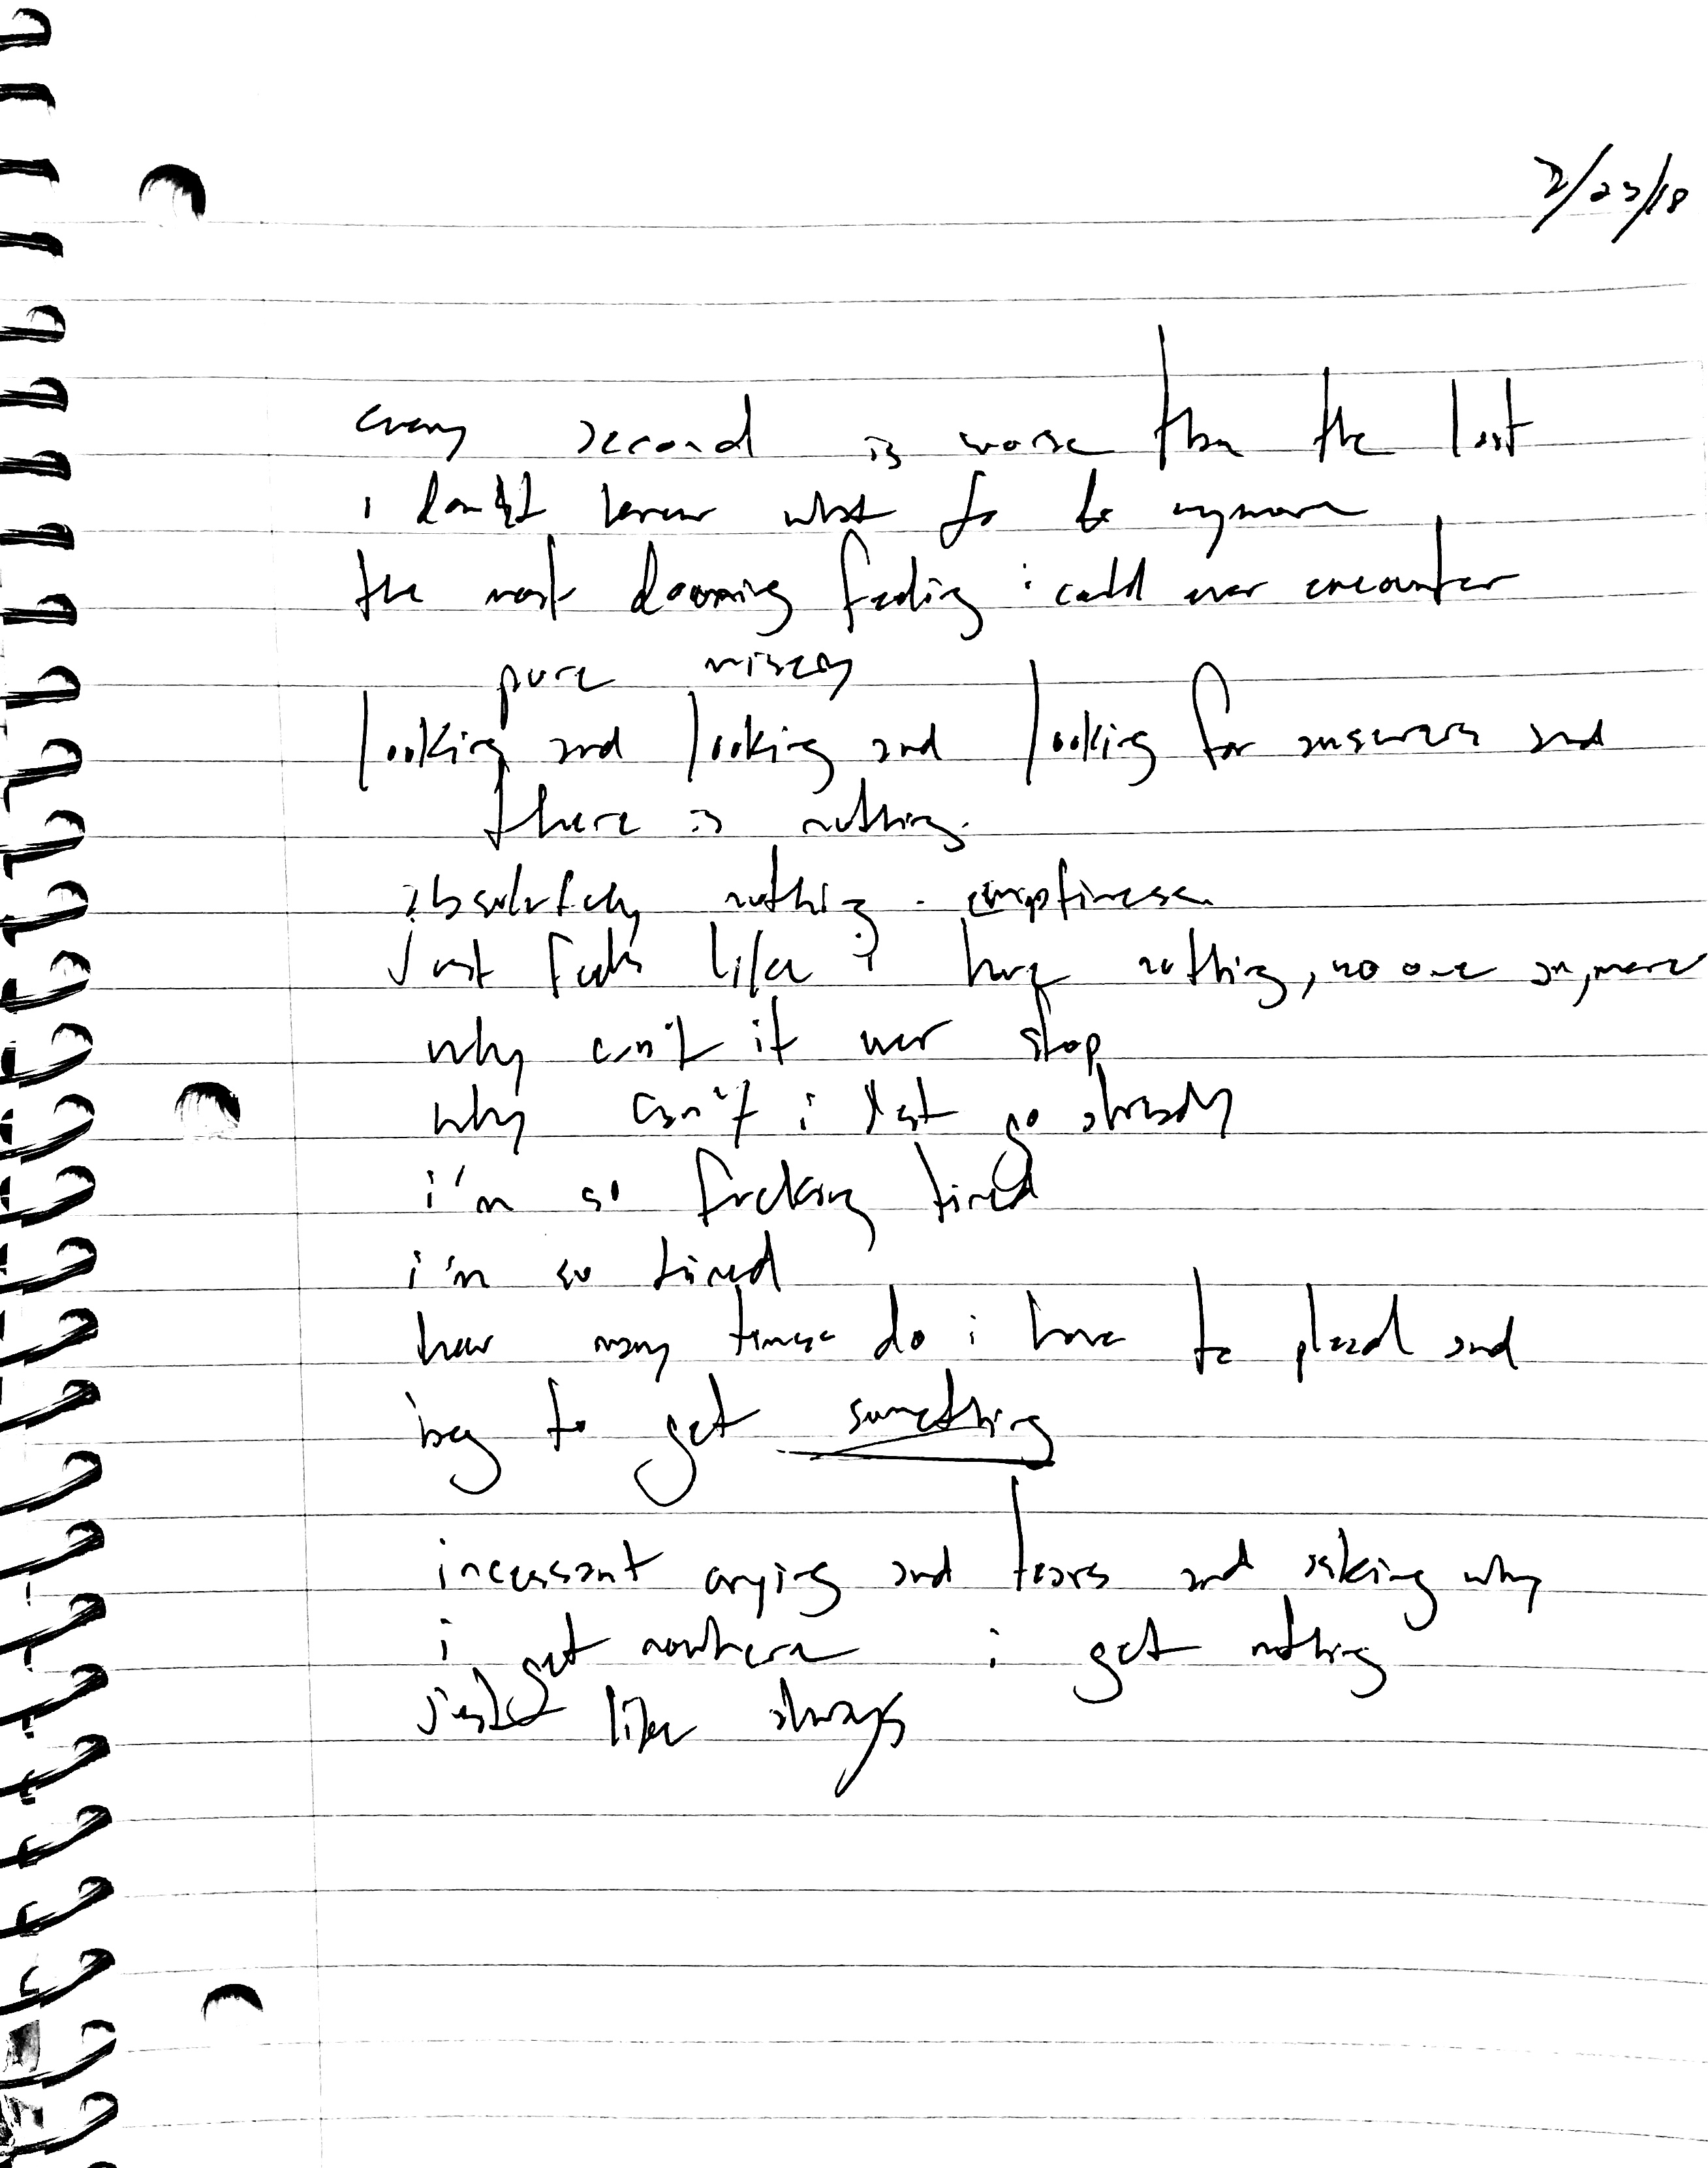 2/23/18
every second is worse than the last
i don't know what to do anymore
the most dooming feeling i could ever encounter
pure misery
looking and looking and looking for answers and
there is nothing.
absolutely nothing. emptiness.
just feels like i have nothing, no one anymore
why can't it ever stop
why can't i let go already
i'm so fucking tired
i'm so tired
how many times do i have to plead and
beg to get something
incessant crying and tears and asking why
i get nowhere i get nothing
just like always